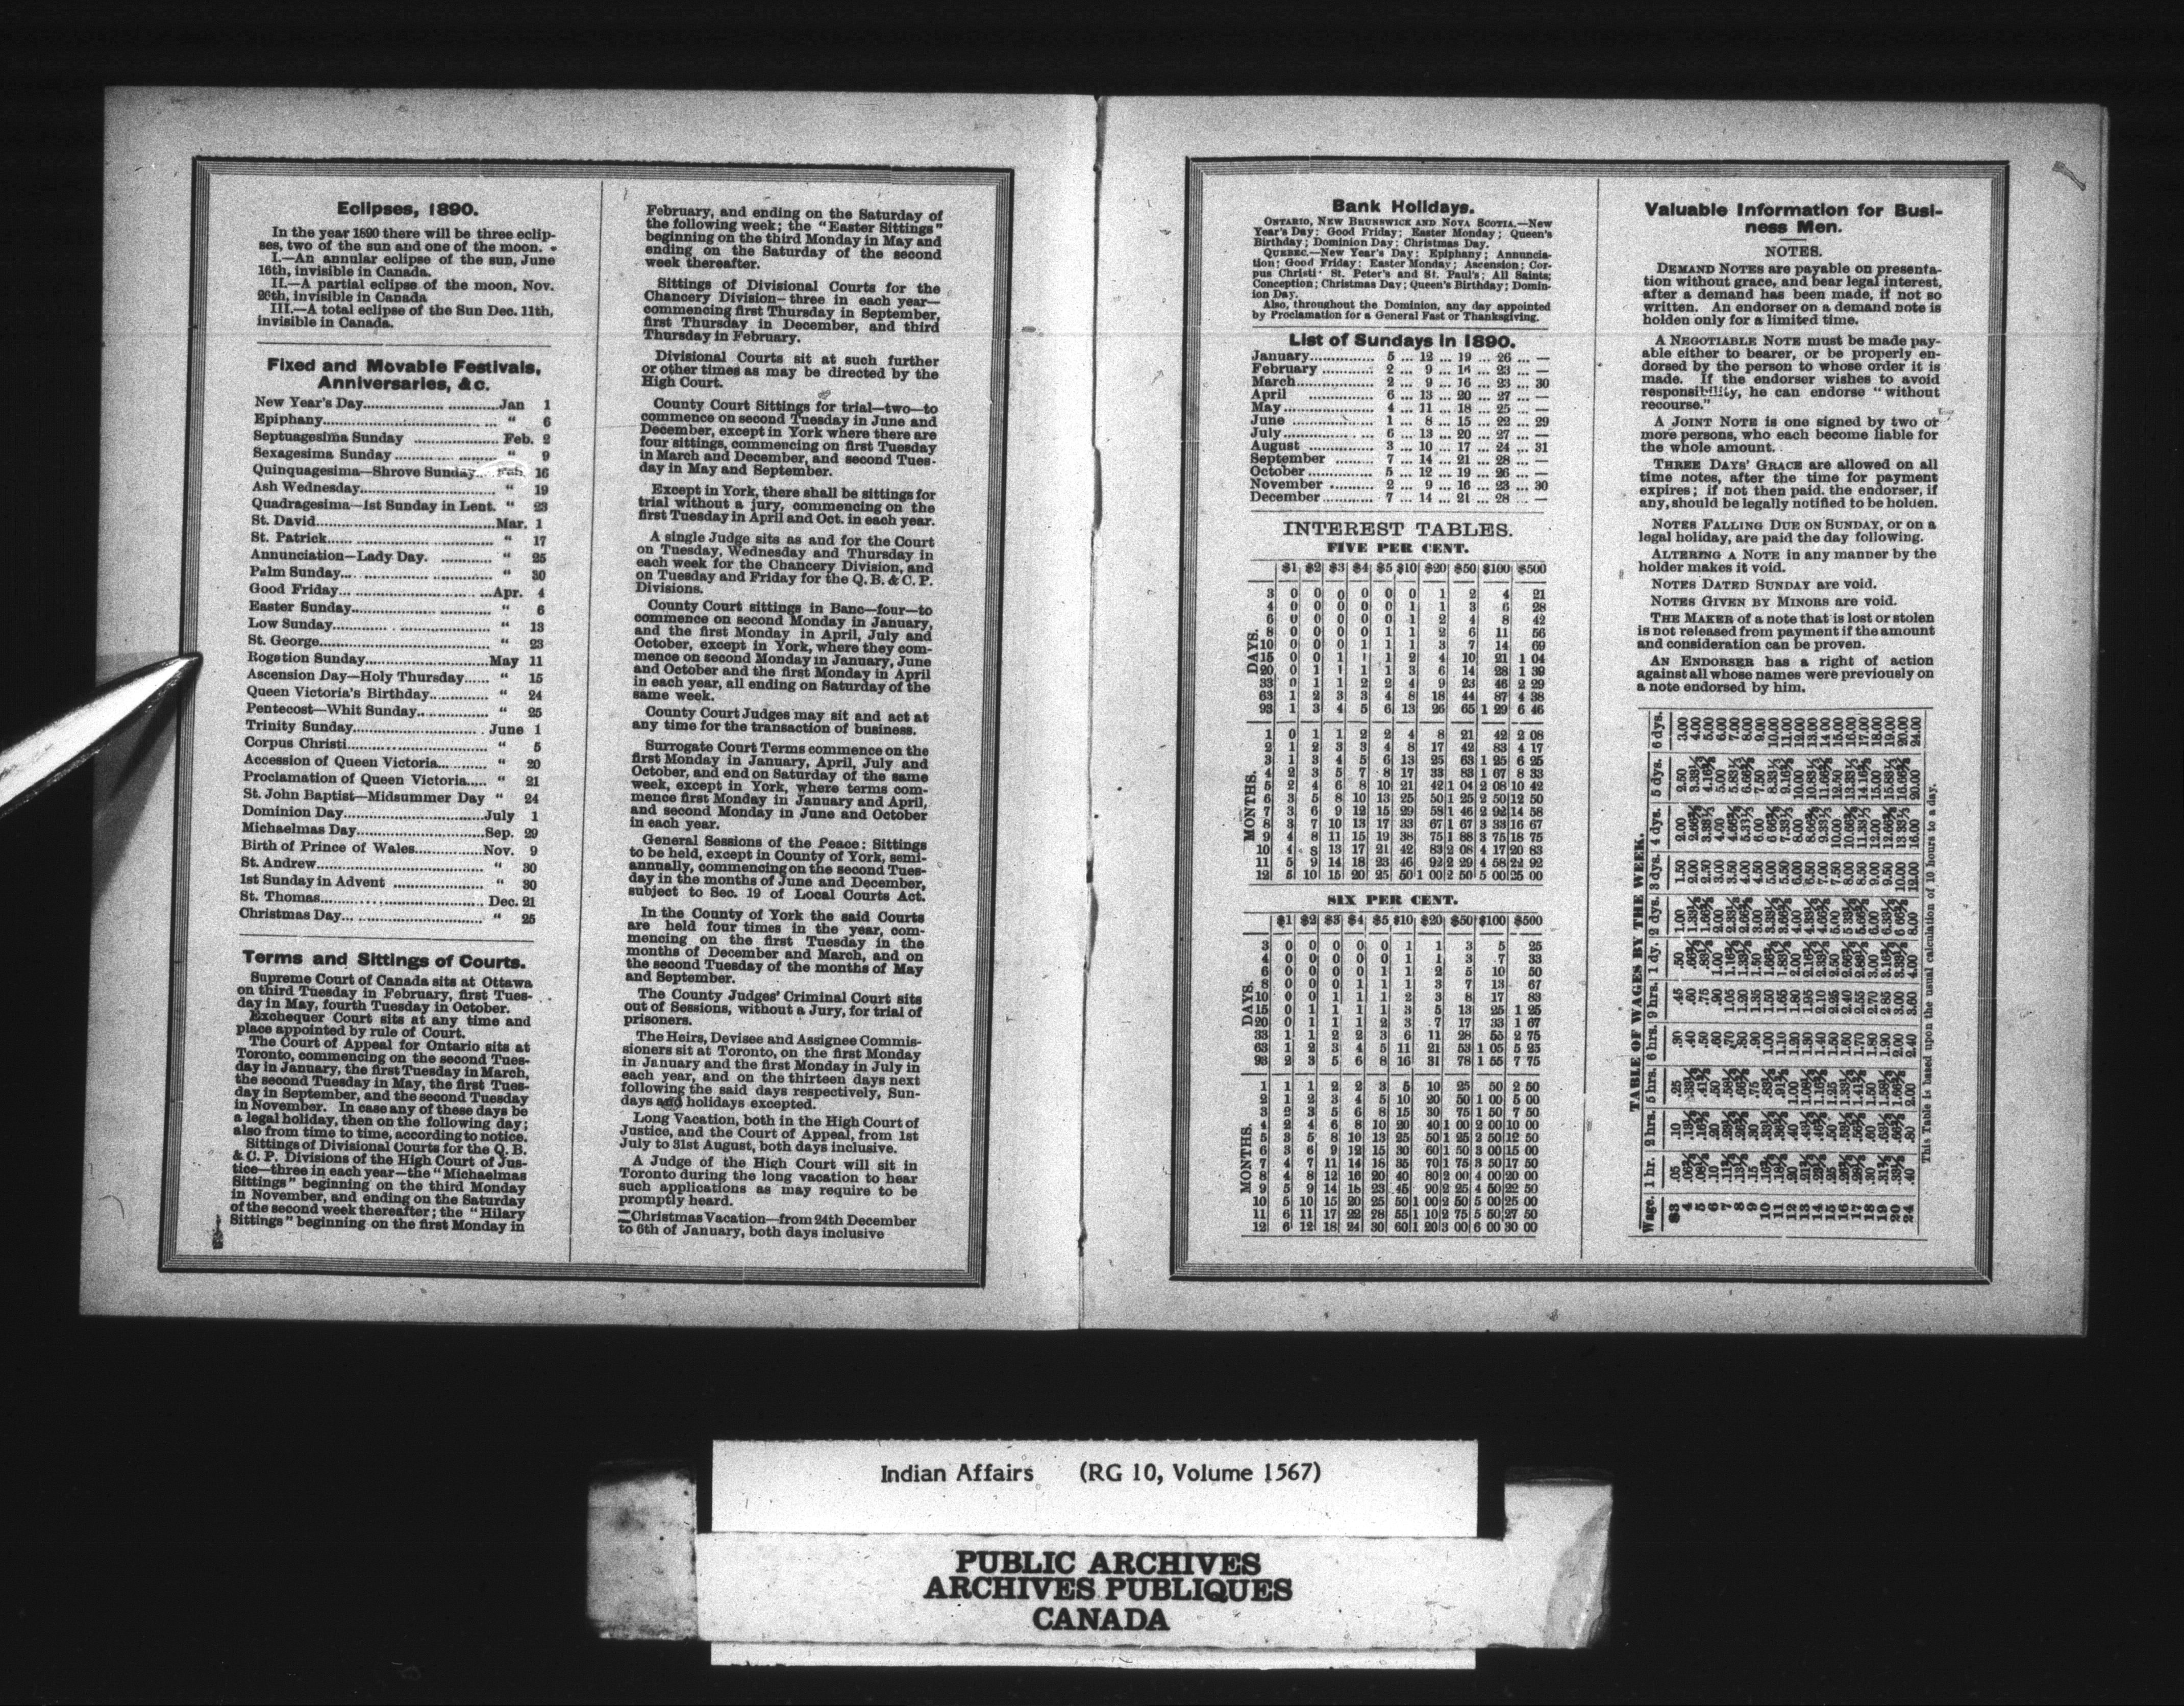 Eclipses, 1890.
In the year 1890 there will be three eclip-
ses, two of the sun and one of the moon.
I.—An annular eclipse of the sun, June
16th, invisible in Canada.
II.—A partial eclipse of the moon, Nov.
26th, invisible in Canada
III.—A total eclipse of the Sun Dec. 11th,
invisible in Canada.
Fixed and Movable Festivals,
Anniversaries, &c.
New Year's Day........Jan 1
Epiphany........ " 6
Septuagesima Sunday ........ Feb. 2
Sexagesima Sunday ........ " 9
Quinquagesima—Shrove Sunday.... Feb. 16
Ash Wednesday........ " 19
Quadragesima—1st Sunday in Lent. " 23
St. David........Mar. 1
St. Patrick........ " 17
Annunciation—Lady Day. ........ " 25
Palm Sunday........ " 30
Good Friday........Apr. 4
Easter Sunday........ " 6
Low Sunday........ " 13
St. George........ " 23
Rogation Sunday........May 11
Ascension Day—Holy Thursday...... " 15
Queen Victoria's Birthday........ " 24
Pentecost—Whit Sunday........ " 25
Trinity Sunday........ June 1
Corpus Christi........ " 5
Accession of Queen Victoria........ " 20
Proclamation of Queen Victoria..... " 21
St. John Baptist—Midsummer Day " 24
Dominion Day........July 1
Michaelmas Day........Sep. 29
Birth of Prince of Wales........Nov. 9
St. Andrew........ " 30
1st Sunday in Advent ........ " 30
St. Thomas........ Dec. 21
Christmas Day........ " 25
Terms and Sittings of Courts.
Supreme Court of Canada sits at Ottawa
on third Tuesday in February, first Tues-
day in May, fourth Tuesday in October.
Exchequer Court sits at any time and
place appointed by rule of Court.
The Court of Appeal for Ontario sits at
Toronto, commencing on the second Tues-
day in January, the first Tuesday in March,
the second Tuesday in May, the first Tues-
day in September, and the second Tuesday
in November. In case any of these days be
a legal holiday, then on the following day;
also from time to time, according to notice.
Sittings of Divisional Courts for the Q. B.
& C. P. Divisions of the High Court of Jus-
tice—three in each year—the "Michaelmas
Sittings" beginning on the third Monday
in November, and ending on the Saturday
of the second week thereafter; the "Hilary
Sittings" beginning on the first Monday in
February, and ending on the Saturday of
the following week; the "Easter Sittings"
beginning on the third Monday in May and
ending on the Saturday of the second
week thereafter.
Sittings of Divisional Courts for the
Chancery Division—three in each year—
commencing first Thursday in September,
first Thursday in December, and third
Thursday in February.
Divisional Courts sit at such further
or other times as may be directed by the
High Court.
County Court Sittings for trial—two—to
commence on second Tuesday in June and
December, except in York where there are
four sittings, commencing on first Tuesday
in March and December, and second Tues-
day in May and September.
Except in York, there shall be sittings for
trial without a jury, commencing on the
first Tuesday in April and Oct. in each year.
A single Judge sits as and for the Court
on Tuesday, Wednesday and Thursday in
each week for the Chancery Division, and
on Tuesday and Friday for the Q. B. & C. P.
Divisions.
County Court sittings in Banc—four—to
commence on second Monday in January,
and the first Monday in April, July and
October, except in York, where they com-
mence on second Monday in January, June
and October and the first Monday in April
in each year, all ending on Saturday of the
same week.
County Court Judges may sit and act at
any time for the transaction of business.
Surrogate Court Terms commence on the
first Monday in January, April, July and
October, and end on Saturday of the same
week, except in York, where terms com-
mence first Monday in January and April,
and second Monday in June and October
in each year.
General Sessions of the Peace: Sittings
to be held, except in County of York, semi-
annually, commencing on the second Tues-
day in the months of June and December,
subject to Sec. 19 of Local Courts Act.
In the County of York the said Courts
are held four times in the year, com-
mencing on the first Tuesday in the
months of December and March, and on
the second Tuesday of the months of May
and September.
The County Judges' Criminal Court sits
out of Sessions, without a Jury, for trial of
prisoners.
The Heirs, Devisee and Assignee Commis-
sioners sit at Toronto, on the first Monday
in January and the first Monday in July in
each year, and on the thirteen days next
following the said days respectively, Sun-
days and holidays excepted.
Long Vacation, both in the High Court of
Justice, and the Court of Appeal, from 1st
July to 31st August, both days inclusive.
A Judge of the High Court will sit in
Toronto during the long vacation to hear
such applications as may require to be
promptly heard.
Christmas Vacation—from 24th December
to 6th of January, both days inclusive
Bank Holidays.
ONTARIO, NEW BRUNSWICK AND NOVA SCOTIA.—New
Year's Day; Good Friday; Easter Monday; Queen's
Birthday; Dominion Day; Christmas Day.
QUEBEC.—New Year's Day; Epiphany; Annuncia-
tion; Good Friday; Easter Monday; Ascension; Cor-
pus Christi; St. Peter's and St. Paul's; All Saints;
Conception; Christmas Day; Queen's Birthday; Domin-
ion Day.
Also, throughout the Dominion, any day appointed
by Proclamation for a General Fast or Thanksgiving.
List of Sundays in 1890.
January........ 5 ... 12 ... 19 ... 26 ... —
February ........ 2 ... 9 ... 16 ... 23 ... —
March........ 2 ... 9 ... 16 ... 23 ... 30
April ........ 6 ... 13 ... 20 ... 27 ... —
May........ 4 ... 11 ... 18 ... 25 ... —
June ........ 1 ... 8 ... 15 ... 22 ... 29
July........ 6 ... 13 ... 20 ... 27 ... —
August ........ 3 ... 10 ... 17 ... 24 ... 31
September ........ 7 ... 14 ... 21 ... 28 ... —
October........ 5 ... 12 ... 19 ... 26 ... —
November ........ 2 ... 9 ... 16 ... 23 ... 30
December........ 7 ... 14 ... 21 ... 28 ... —
INTEREST TABLES.
FIVE PER CENT.
$1 $2 $3 $4 $5 $10 $20 $50 $100 $500
DAYS.
3 0 0 0 0 0 0 1 2 4 21
4 0 0 0 0 0 1 1 3 6 28
6 0 0 0 0 0 1 2 4 8 42
8 0 0 0 0 1 1 2 6 11 56
10 0 0 0 1 1 1 3 7 14 69
15 0 0 1 1 1 2 4 10 21 1 04
20 0 1 1 1 1 3 6 14 28 1 39
33 0 1 1 2 2 4 9 23 46 2 29
63 1 2 3 3 4 8 18 44 87 4 38
93 1 3 4 5 6 13 26 65 1 29 6 46
MONTHS.
1 0 1 1 2 2 4 8 21 42 2 08
2 1 2 3 3 4 8 17 42 83 4 17
3 1 3 4 5 6 13 25 63 1 25 6 25
4 2 3 5 7 8 17 33 83 1 67 8 33
5 2 4 6 8 10 21 42 1 04 2 08 10 42
6 3 5 8 10 13 25 50 1 25 2 50 12 50
7 3 6 9 12 15 29 58 1 46 2 92 14 58
8 3 7 10 13 17 33 67 1 67 3 33 16 67
9 4 8 11 15 19 38 75 1 88 3 75 18 75
10 4 8 13 17 21 42 83 2 08 4 17 20 83
11 5 9 14 18 23 46 92 2 29 4 58 22 92
12 5 10 15 20 25 50 1 00 2 50 5 00 25 00
SIX PER CENT.
$1 $2 $3 $4 $5 $10 $20 $50 $100 $500
DAYS.
3 0 0 0 0 0 1 1 3 5 25
4 0 0 0 0 0 1 1 3 7 33
6 0 0 0 0 1 1 2 5 10 50
8 0 0 0 1 1 1 3 7 13 67
10 0 0 1 1 1 2 3 8 17 83
15 0 1 1 1 1 3 5 13 25 1 25
20 0 1 1 1 2 3 7 17 33 1 67
33 1 1 2 2 3 6 11 28 55 2 75
63 1 2 3 4 5 11 21 53 1 05 5 25
93 2 3 5 6 8 16 31 78 1 55 7 75
MONTHS.
1 1 1 2 2 3 5 10 25 50 2 50
2 1 2 3 4 5 10 20 50 1 00 5 00
3 2 3 5 6 8 15 30 75 1 50 7 50
4 2 4 6 8 10 20 40 1 00 2 00 10 00
5 3 5 8 10 13 25 50 1 25 2 50 12 50
6 3 6 9 12 15 30 60 1 50 3 00 15 00
7 4 7 11 14 18 35 70 1 75 3 50 17 50
8 4 8 12 16 20 40 80 2 00 4 00 20 00
9 5 9 14 18 23 45 90 2 25 4 50 22 50
10 5 10 15 20 25 50 1 00 2 50 5 00 25 00
11 6 11 17 22 28 55 1 10 2 75 5 50 27 50
12 6 12 18 24 30 60 1 20 3 00 6 00 30 00
Valuable Information for Busi-
ness Men.
NOTES.
DEMAND NOTES are payable on presenta-
tion without grace, and bear legal interest,
after a demand has been made, if not so
written. An endorser on a demand note is
holden only for a limited time.
A NEGOTIABLE NOTE must be made pay-
able either to bearer, or be properly en-
dorsed by the person to whose order it is
made. If the endorser wishes to avoid
responsibility, he can endorse "without
recourse."
A JOINT NOTE is one signed by two or
more persons, who each become liable for
the whole amount.
THREE DAYS' GRACE are allowed on all
time notes, after the time for payment
expires; if not then paid. the endorser, if
any, should be legally notified to be holden.
NOTES FALLING DUE ON SUNDAY, or on a
legal holiday, are paid the day following.
ALTERING A NOTE in any manner by the
holder makes it void.
NOTES DATED SUNDAY are void.
NOTES GIVEN BY MINORS are void.
THE MAKER of a note that is lost or stolen
is not released from payment if the amount
and consideration can be proven.
AN ENDORSER has a right of action
against all whose names were previously on
a note endorsed by him.
TABLE OF WAGES BY THE WEEK.
Wage. 1 hr. 2 hrs. 5 hrs. 6 hrs. 9 hrs. 1 dy. 2 dys. 3 dys. 4 dys. 5 dys. 6 dys.
$3 .05 .10 .25 .30 .45 .50 1.00 1.50 2.00 2.50 3.00
6 .10 .20 .50 .60 .90 1.00 2.00 3.00 4.00 5.00 6.00
9 .15 .30 .75 .90 1.35 1.50 3.00 4.50 6.00 7.50 9.00
12 .20 .40 1.00 1.20 1.80 2.00 4.00 6.00 8.00 10.00 12.00
15 .25 .50 1.25 1.50 2.25 2.50 5.00 7.50 10.00 12.50 15.00
18 .30 .60 1.50 1.80 2.70 3.00 6.00 9.00 12.00 15.00 18.00
24 .40 .80 2.00 2.40 3.60 4.00 8.00 12.00 16.00 20.00 24.00
This Table is based upon the usual calculation of 10 hours to a day.
Indian Affairs (RG 10, Volume 1567)
PUBLIC ARCHIVES
ARCHIVES PUBLIQUES
CANADA